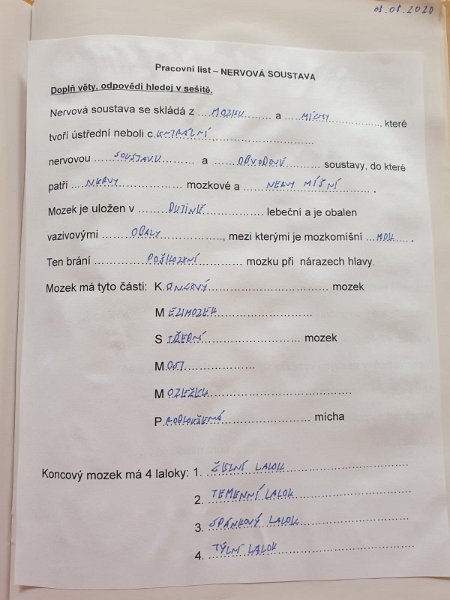 08.01.2020
Pracovní list – NERVOVÁ SOUSTAVA
Doplň věty, odpovědi hledej v sešitě.
Nervová soustava se skládá z MOZKU a MÍCHY, které
tvoří ústřední neboli c.ENTRÁLNÍ
nervovou SOUSTAVU a OBVODOVÉ soustavy, do které
patří NERVY mozkové a NERVY MÍŠNÍ.
Mozek je uložen v DUTINĚ lebeční a je obalen
vazivovými OBALY, mezi kterými je mozkomíšní MOK.
Ten brání POŠKOZENÍ mozku při nárazech hlavy.
Mozek má tyto části: K.ONCOVÝ mozek
M EZIMOZEK
S TŘEDNÍ mozek
M OST
M OZEČEK
P RODLOUŽENÁ mícha
Koncový mozek má 4 laloky: 1. ČELNÍ LALOK
2. TEMENNÍ LALOK
3. SPÁNKOVÝ LALOK
4. TÝLNÍ LALOK